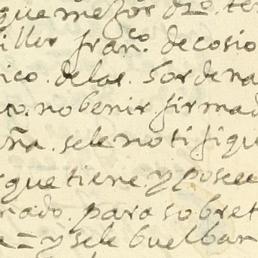 que mejor dho. te
iller franco. de cosio
ico. de las. Sordena
to. no benir firmad
uña. se le notifiqu
rque tiene y posee
rado. para sobret
a = y se le buelban